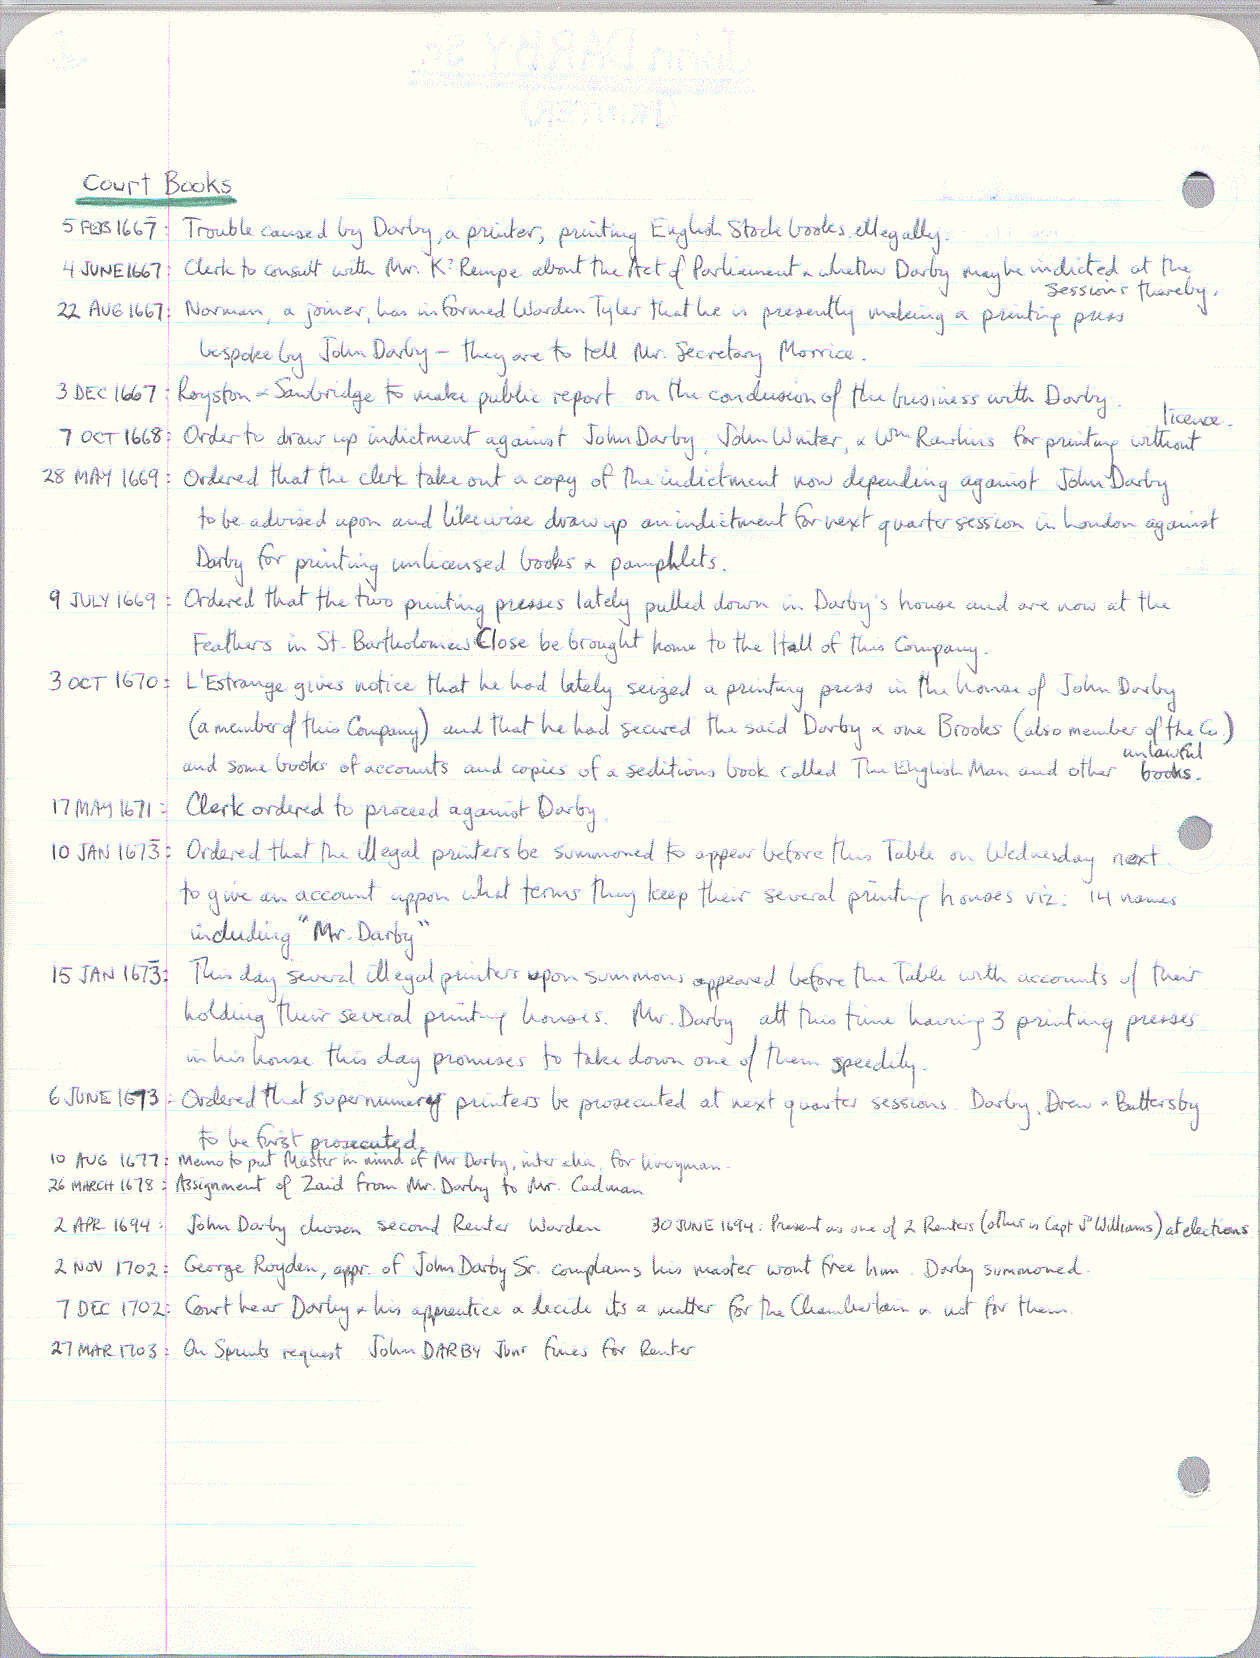 Court Books
5 FEB 1667: Trouble caused by Darby, a printer, printing English Stock books illegally.
4 JUNE 1667: Clerk to consult with Mr. about the Act of Parliament & whether Darby may be indicted at the
sessions thereby.
22 AUG 1667: Norman, a joiner, has informed Warden Tyler that he is presently making a printing press
bespoke by John Darby – they are to tell Mr. Secretary Morrice.
3 DEC 1667: Royston & Sawbridge to make public report on the conclusion of the business with Darby.
licence.
7 OCT 1668: Order to draw up indictment against John Darby, John Winter, & Wm Rawlins for printing without
28 MAY 1669: Ordered that the clerk take out a copy of the indictment now depending against John Darby
to be advised upon and likewise draw up an indictment for next quarter session in London against
Darby for printing unlicensed books & pamphlets.
9 JULY 1669: Ordered that the two printing presses lately pulled down in Darby's house and are now at the
Feathers in St. Bartholomews Close be brought home to the Hall of this Company.
3 OCT 1670: L'Estrange gives notice that he had lately seized a printing press in the house of John Darby
(a member of this Company) and that he had secured the said Darby & one Brooks (also member of the Co.)
unlawful
and some books of accounts and copies of a seditious book called The English Man and other books.
17 MAY 1671: Clerk ordered to proceed against Darby.
10 JAN 1673: Ordered that the illegal printers be summoned to appear before this Table on Wednesday next
to give an account uppon what terms they keep their several printing houses viz: 14 names
including "Mr. Darby"
15 JAN 1673: This day several illegal printers upon summons appeared before the Table with accounts of their
holding their several printing houses. Mr. Darby att this time having 3 printing presses
in his house this day promises to take down one of them speedily.
6 JUNE 1673: Ordered that supernumery printers be prosecuted at next quarter sessions. Darby, Drew & Battersby
to be first prosecuted.
10 AUG 1677: Memo to put Master in mind of Mr Darby, inter alia, for liveryman.
26 MARCH 1678: Assignment of Zaid from Mr. Darby to Mr. Cadman
2 APR 1694: John Darby chosen second Renter Warden 30 JUNE 1694: Present as one of 2 Renters (other is Capt Jn Williams) at elections
2 NOV 1702: George Royden, appr. of John Darby Sr. complains his master wont free him. Darby summoned.
7 DEC 1702: Court hear Darby & his apprentice & decide its a matter for the Chamberlain & not for them.
27 MAR 1703: On Sprints request John DARBY Junr fines for Renter